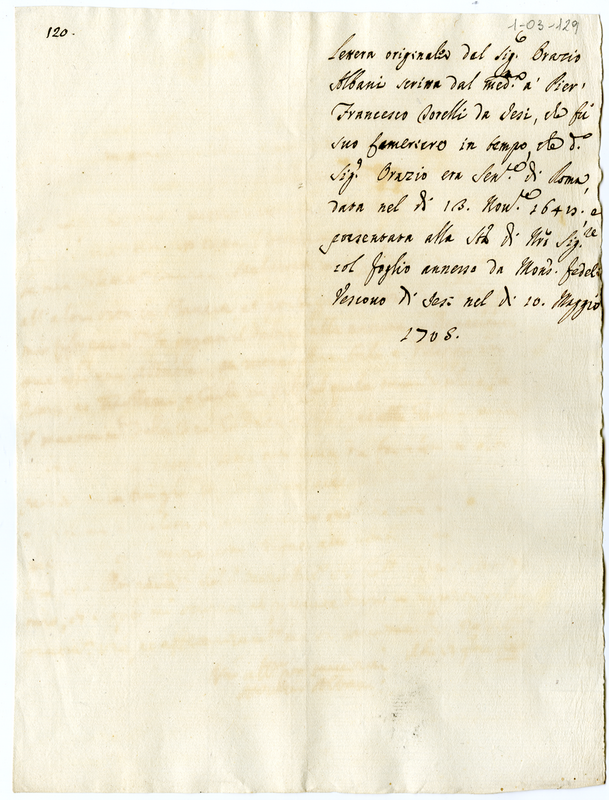 120.
1-03-129
Lettera originale del Sig.e Orazio
Albani scritta dal med.o à Pier,
Francesco Sorelli da Jesi, che fù
suo Cameriero in tempo, che d.o
Sig.e Orazio era Sen.re di Roma,
data nel dì 13. Nov.re e
presentata alla Stà di Nrò Sig.re
col foglio annesso da Mons. Fedeli
Vescovo di Jesi nel dì 10. Maggio
1708.